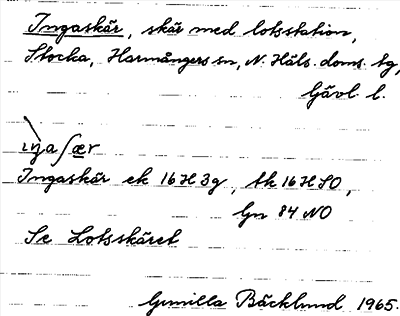 Ingaskär, skär med lotsstation,
Stocka, Harmångers sn, N. Häls. doms. tg,
Gävl. l.
ɪŋaʃær
Ingaskär ek 16H3g, tk 16H SO,
Gn 84 NO
Se Lotsskäret
Gunilla Bäcklund 1965.